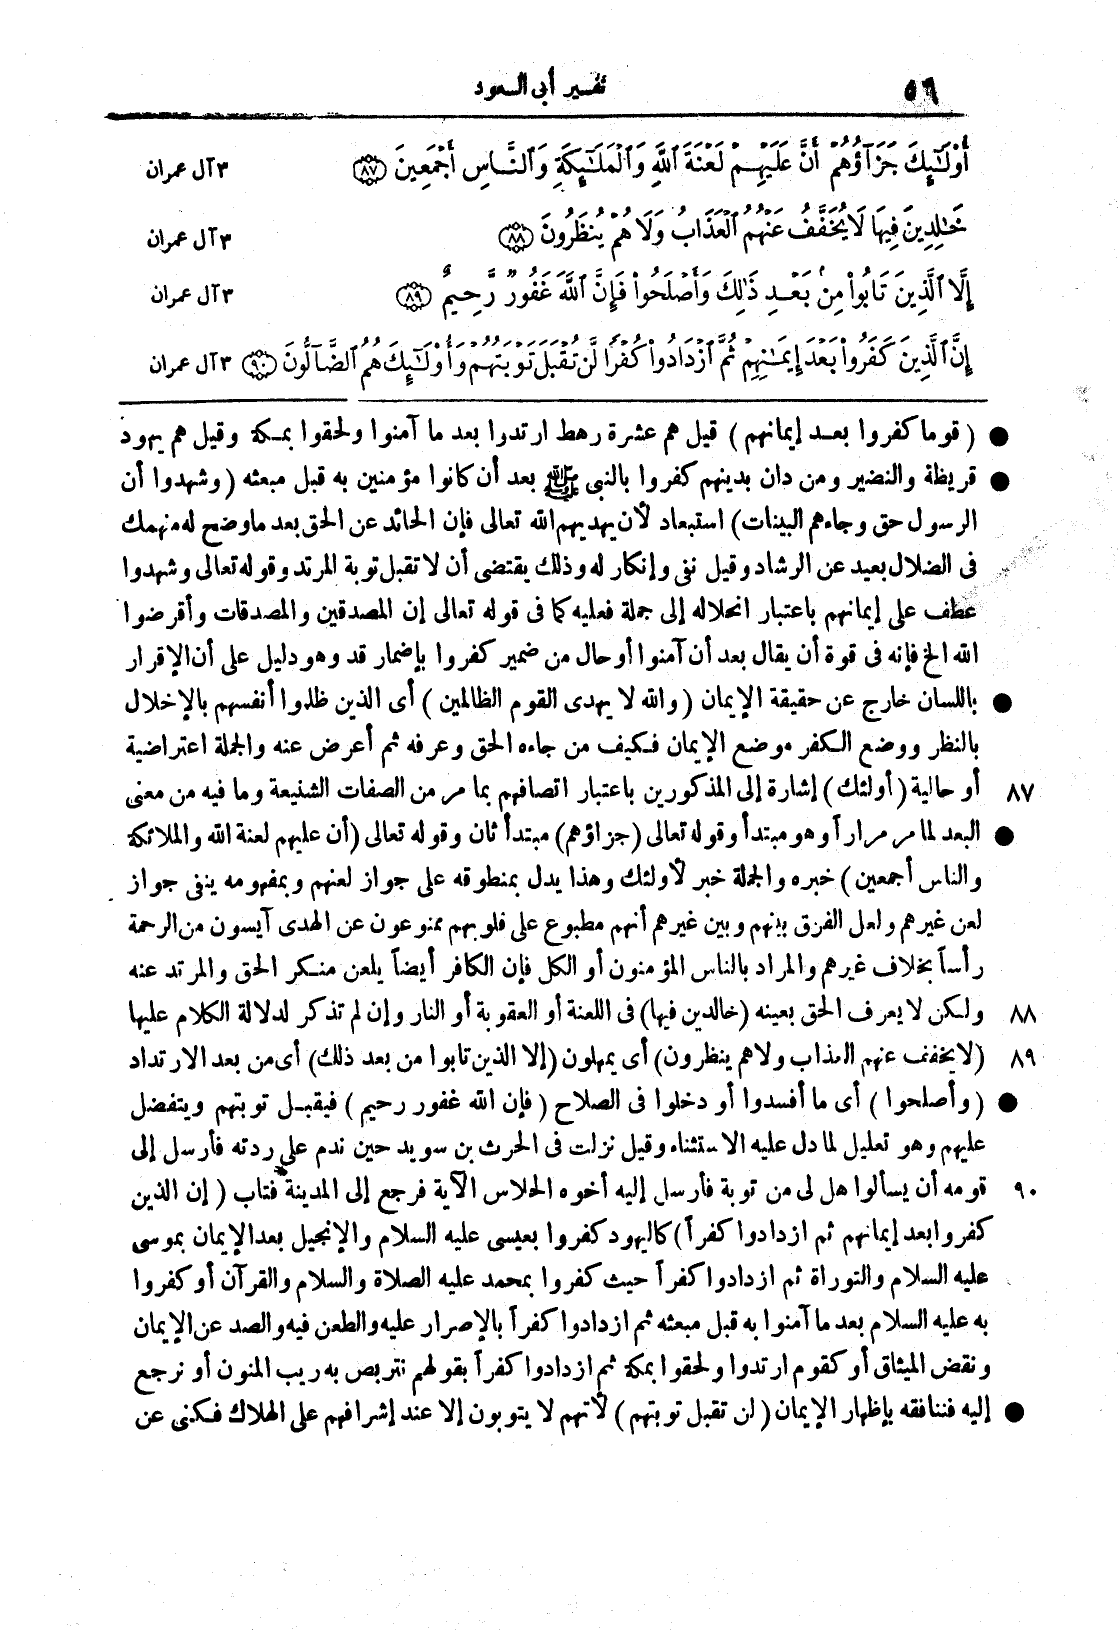 ٥٦ تفسير أبى السعود
أُوْلَٰٓئِكَ جَزَآؤُهُمْ أَنَّ عَلَيْهِمْ لَعْنَةَ ٱللَّهِ وَٱلْمَلَٰٓئِكَةِ وَٱلنَّاسِ أَجْمَعِينَ ﴿٨٧﴾ ٣ آل عمران
خَٰلِدِينَ فِيهَا لَا يُخَفَّفُ عَنْهُمُ ٱلْعَذَابُ وَلَا هُمْ يُنظَرُونَ ﴿٨٨﴾ ٣ آل عمران
إِلَّا ٱلَّذِينَ تَابُوا۟ مِنۢ بَعْدِ ذَٰلِكَ وَأَصْلَحُوا۟ فَإِنَّ ٱللَّهَ غَفُورٌ رَّحِيمٌ ﴿٨٩﴾ ٣ آل عمران
إِنَّ ٱلَّذِينَ كَفَرُوا۟ بَعْدَ إِيمَٰنِهِمْ ثُمَّ ٱزْدَادُوا۟ كُفْرًا لَّن تُقْبَلَ تَوْبَتُهُمْ وَأُوْلَٰٓئِكَ هُمُ ٱلضَّآلُّونَ ﴿٩٠﴾ ٣ آل عمران
● (قوما كفروا بعد إيمانهم) قيل هم عشرة رهط ارتدوا بعد ما آمنوا ولحقوا بمكة وقيل هم يهود
● قريظة والنضير ومن دان بدينهم كفروا بالنبى ﷺ بعد أن كانوا مؤمنين به قبل مبعثه (وشهدوا أن
الرسول حق وجاءهم البينات) استبعاد لأن يهديهم الله تعالى فإن الحائد عن الحق بعد ما وضح له منهمك
فى الضلال بعيد عن الرشاد وقيل نفى وإنكار له وذلك يقتضى أن لا تقبل توبة المرتد وقوله تعالى وشهدوا
عطف على إيمانهم باعتبار انحلاله إلى جملة فعليه كما فى قوله تعالى إن المصدقين والمصدقات وأقرضوا
الله الخ فإنه فى قوة أن يقال بعد أن آمنوا أو حال من ضمير كفروا بإضمار قد وهو دليل على أن الإقرار
● باللسان خارج عن حقيقة الإيمان (والله لا يهدى القوم الظالمين) أى الذين ظلموا أنفسهم بالإخلال
بالنظر ووضع الكفر موضع الإيمان فكيف من جاءه الحق وعرفه ثم أعرض عنه والجملة اعتراضية
٨٧ أو حالية (أولئك) إشارة إلى المذكورين باعتبار اتصافهم بما مر من الصفات الشنيعة وما فيه من معنى
● البعد لما مر مراراً وهو مبتدأ وقوله تعالى (جزاؤهم) مبتدأ ثان وقوله تعالى (أن عليهم لعنة الله والملائكة
والناس أجمعين) خبره والجملة خبر لأولئك وهذا يدل بمنطوقه على جواز لعنهم وبمفهومه ينفى جواز
لعن غيرهم ولعل الفرق بينهم وبين غيرهم أنهم مطبوع على قلوبهم ممنوعون عن الهدى آيسون من الرحمة
رأساً بخلاف غيرهم والمراد بالناس المؤمنون أو الكل فإن الكافر أيضاً يلعن منكر الحق والمرتد عنه
٨٨ ولكن لا يعرف الحق بعينه (خالدين فيها) فى اللعنة أو العقوبة أو النار وإن لم تذكر لدلالة الكلام عليها
٨٩ (لا يخفف عنهم العذاب ولا هم ينظرون) أى يمهلون (إلا الذين تابوا من بعد ذلك) أى من بعد الارتداد
● (وأصلحوا) أى ما أفسدوا أو دخلوا فى الصلاح (فإن الله غفور رحيم) فيقبل توبتهم ويتفضل
عليهم وهو تعليل لما دل عليه الاستثناء وقيل نزلت فى الحرث بن سويد حين ندم على ردته فأرسل إلى
٩٠ قومه أن يسألوا هل لى من توبة فأرسل إليه أخوه الجلاس الآية فرجع إلى المدينة فتاب (إن الذين
كفروا بعد إيمانهم ثم ازدادوا كفراً) كاليهود كفروا بعيسى عليه السلام والإنجيل بعد الإيمان بموسى
عليه السلام والتوراة ثم ازدادوا كفراً حيث كفروا بمحمد عليه الصلاة والسلام والقرآن أو كفروا
به عليه السلام بعد ما آمنوا به قبل مبعثه ثم ازدادوا كفراً بالإصرار عليه والطعن فيه والصد عن الإيمان
ونقض الميثاق أو كقوم ارتدوا ولحقوا بمكة ثم ازدادوا كفراً بقولهم نتربص به ريب المنون أو نرجع
● إليه فننافقه بإظهار الإيمان (لن تقبل توبتهم) لأنهم لا يتوبون إلا عند إشرافهم على الهلاك فكنى عن